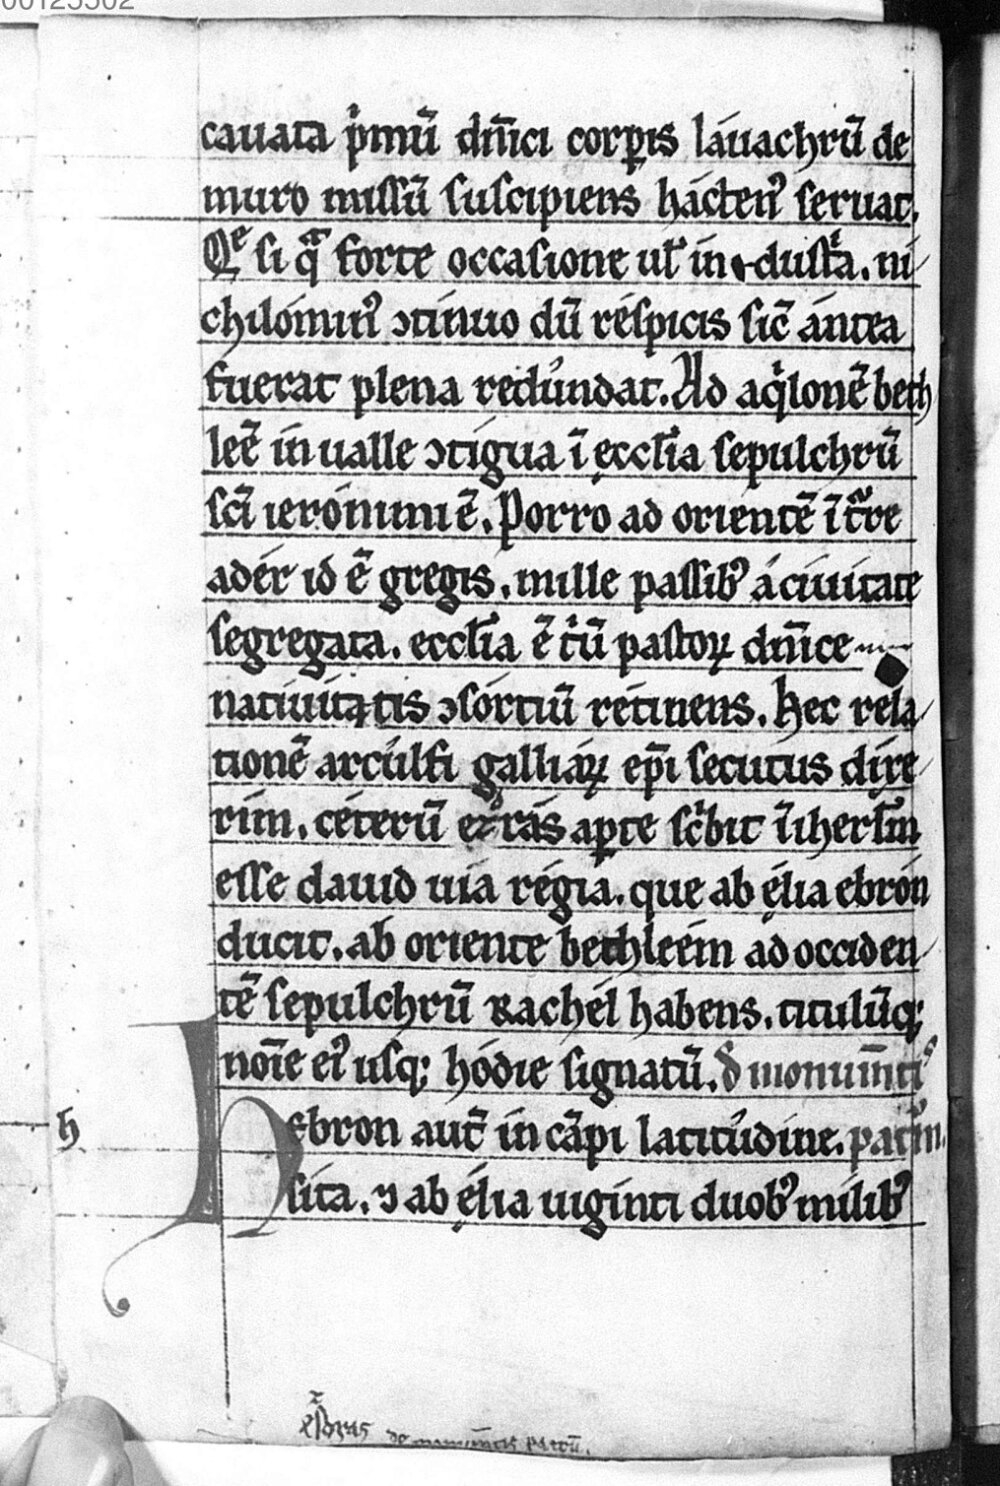 00125502
cauata p̍mū dn̄ici corꝑis láuachrū de
muro missū suscipiens háctenꝰ seruat.
Qͤ si qͣ forte occasione ul̄ in-dust̍a. ni
chilóminꝰ ↄtinuo dū réspicis sic̄ ántea
fuerat plena redúndat. Ad aq̍lonē beth
leē in ualle ↄtigua ī ęccl̄ia sepulchrū
sc̄i ierónimi ē. Porro ad orientē ī tͣre
adér id ē gregis. mille passibꝰ á ciuitate
segregata. eccl̄ia ē t̍ū pastoꝝ dn̄ice
natiuitatis ↄsórtiū rétinens. Hec rela
tionē arcúlfi galliáꝝ ep̄i secutus díxe
rim. céterū eƶ́rás aꝑte sc̍bit ī iherl̄m
esse dauid uia régia. que ab ęlia ebrón
ducit. ab oriente bethleém ad occiden
tē sepulchrū Rachél habens. titulūqꝫ
noīe eiꝰ usqꝫ hódie signatū. d̄ monum̄tis
h
Hebron aut̄ in cā̄pi latitúdine. pat̍m.
sita. ⁊ ab ęlia uiginti duobꝰ mílibꝰ
de monumētis patrū.